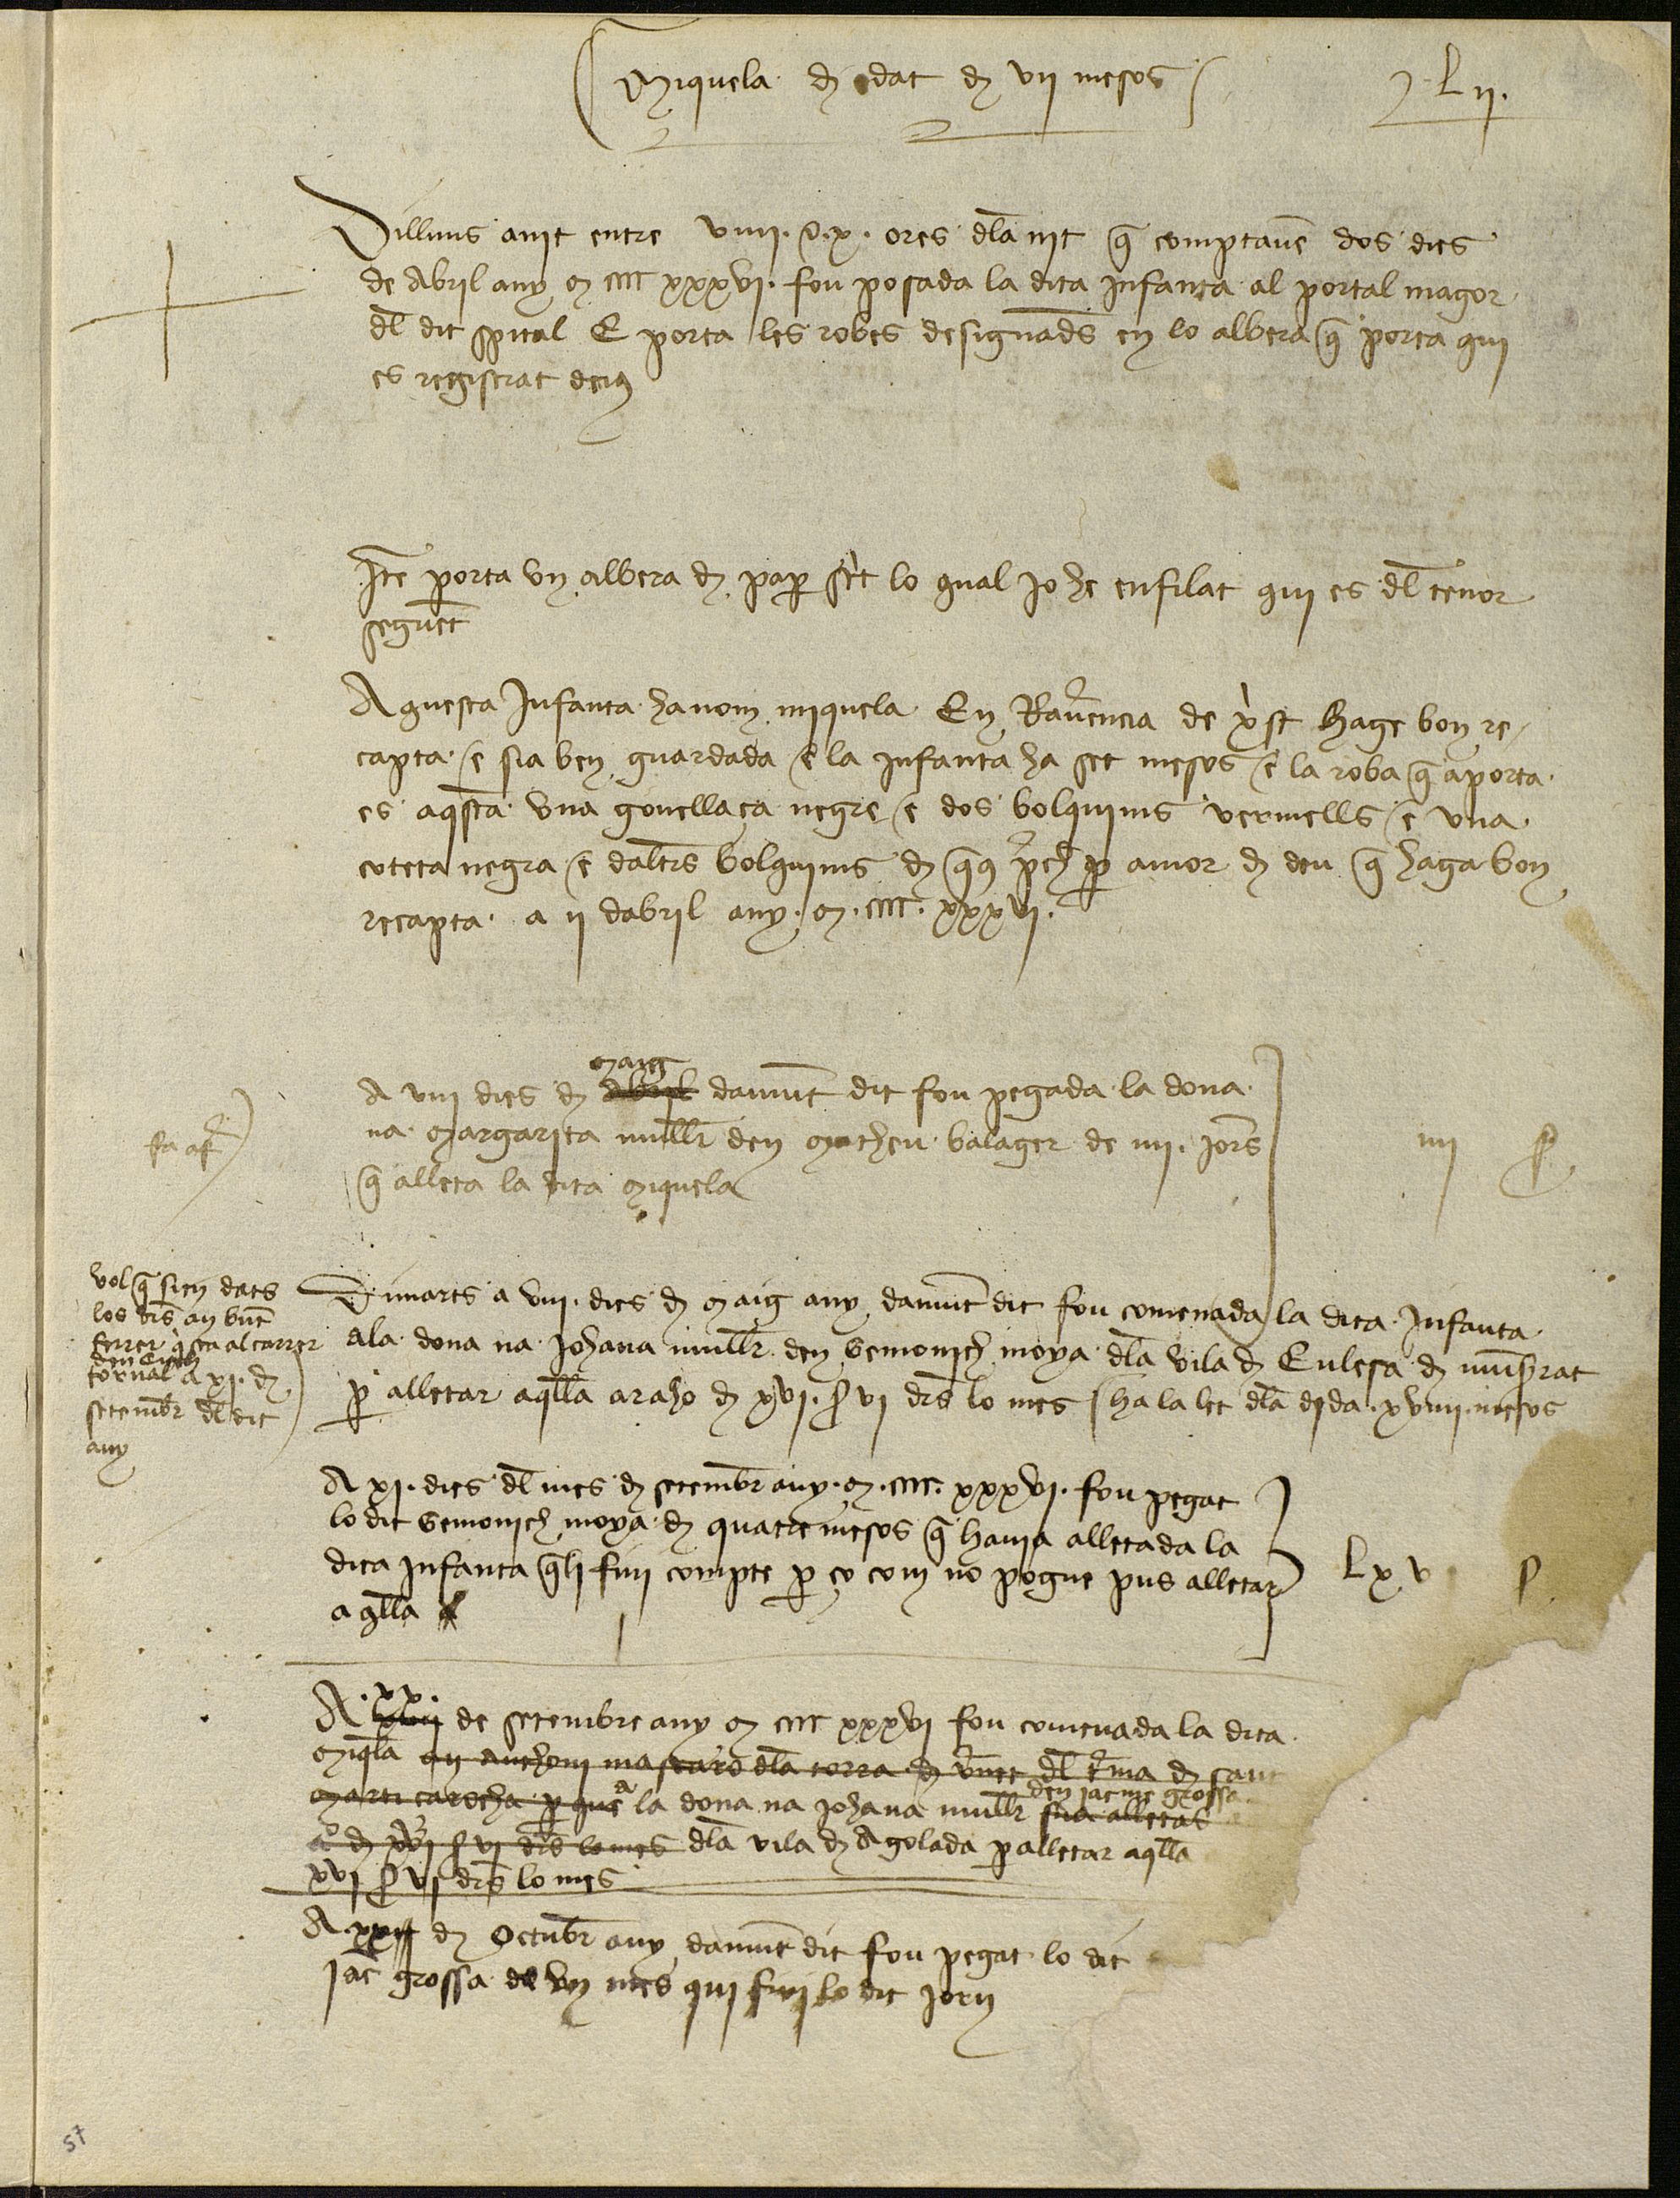 Miquela de edat de vii mesos
Lii.
Dilluns anit entre viiii. o. x. ores dla nit q comptaue dos dies
de Abril any M cccc xxxvi. fou posada la dita infanta al portal magor
dl dit spital E porta les robes designads en lo albera q porta qui
es registrat
Ite porta vn albera de pap sc't lo qual jo he enfilat qui es dl tenor
seguet
Aquesta Infanta ha nom miquela En Rauencia de x'st hage bon re
capta e sia ben guardada e la infanta ha set mesos e la roba q aporta
es aqsta vna gonellaça negre e dos bolquims vermells e vna
coteta negra e daltrs bolquims de p amor de deu q haga bon
recapta. a ii dabril any. M. cccc. xxxvi.
maig
A viii dies de abril damut dit fou pegada la dona
na Margarita mullr den Matheu balager de iiii. jorns
q alleta la dita Miquela
iiii
vol q sien dats
los drs an
ferrer q sta al carrer
tornal a xi. de
setembr dl dit
any
Dimarts a viii. dies de Maig any damut dit fou comenada la dita Infanta
ala dona na Johana mullr den Gemonich moya dla vila de Eulesa de muserat
p alletar aqlla a raho de xvi. s vi drs lo mes ha la let dla dida xviiii. mesos
A xi. dies dl mes de setembr any. M. cccc. xxxvi. fou pegat
lo dit Gemonich moya de quatre mesos q hauia alletada la
dita infanta qli fini compte p ço com no pogue pus alletar
aqlla
Lxv s
A. xx. de setembre any M cccc xxxvi fou comenada la dita
Miqla an Anthoni mascaro dla torra de dl tma de sant
Marti p que a la dona na Johana mullr sua alletas
den jacme grossa
de xvi s vi drs lo mes dla vila de Agolada p alletar aqlla
xvi s vi drs lo mes
A de Octubr any damut dit fou pegat lo dit
jac grossa de vn mes qui fini lo dit jorn
57